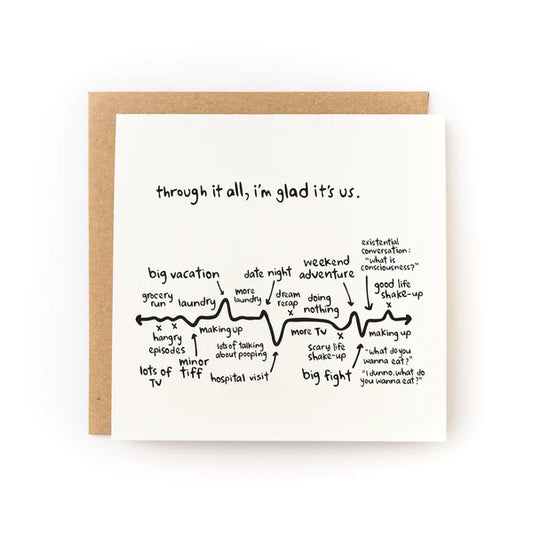 through it all, i'm glad it's us.
existential
conversation:
"what is
consciousness?"
weekend
adventure
big vacation
date night
good life
shake-up
more
laundry
dream
recap
doing
nothing
grocery
run
laundry
x x
x
x
x
hangry
episodes
making up
more TV
making up
lots of talking
about pooping
scary life
shake-up
"what do you
wanna eat?"
minor
tiff
lots of
TV
hospital visit
big fight
"I dunno. what do
you wanna eat?"